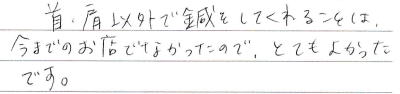 首・肩以外で鍼をしてくれることは、
今までのお店でなかったので、とてもよかった
です。